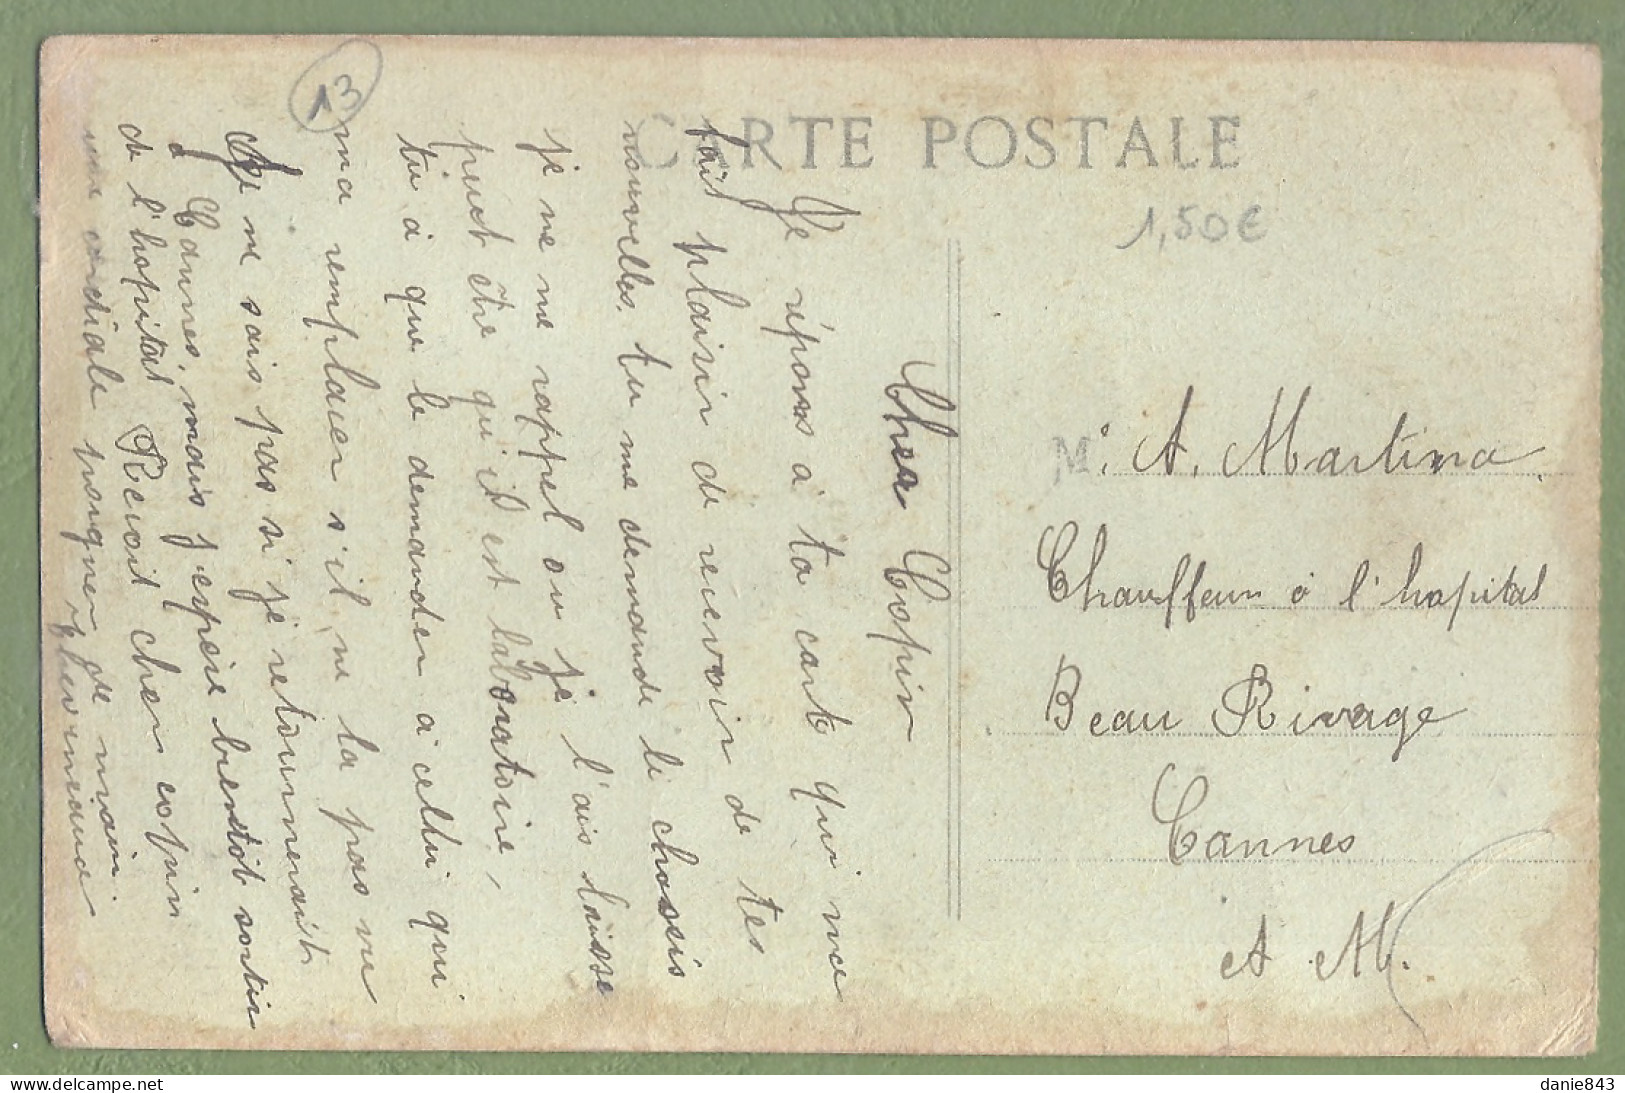 13
CARTE POSTALE
1,50€
Cher Copin
Je répons à ta carte qui me
fait plaisir de recevoir de tes
nouvelles. tu me demande li choseis
je ne me rappel ou je l'ais laisse
piect être qu'il est laboratoire,
tu à que le demander à celui qui
ma remplacer s'il ne la pas vu
Je ne sais pas si je retournerait
à Cannes, mais j'espère bientôt sortir
de l'hopital Recoit cher copin
une cordiale poigner de main
M. A. Martina
Chauffeur à l'hopital
Beau Rivage
Cannes
A M.
danie843